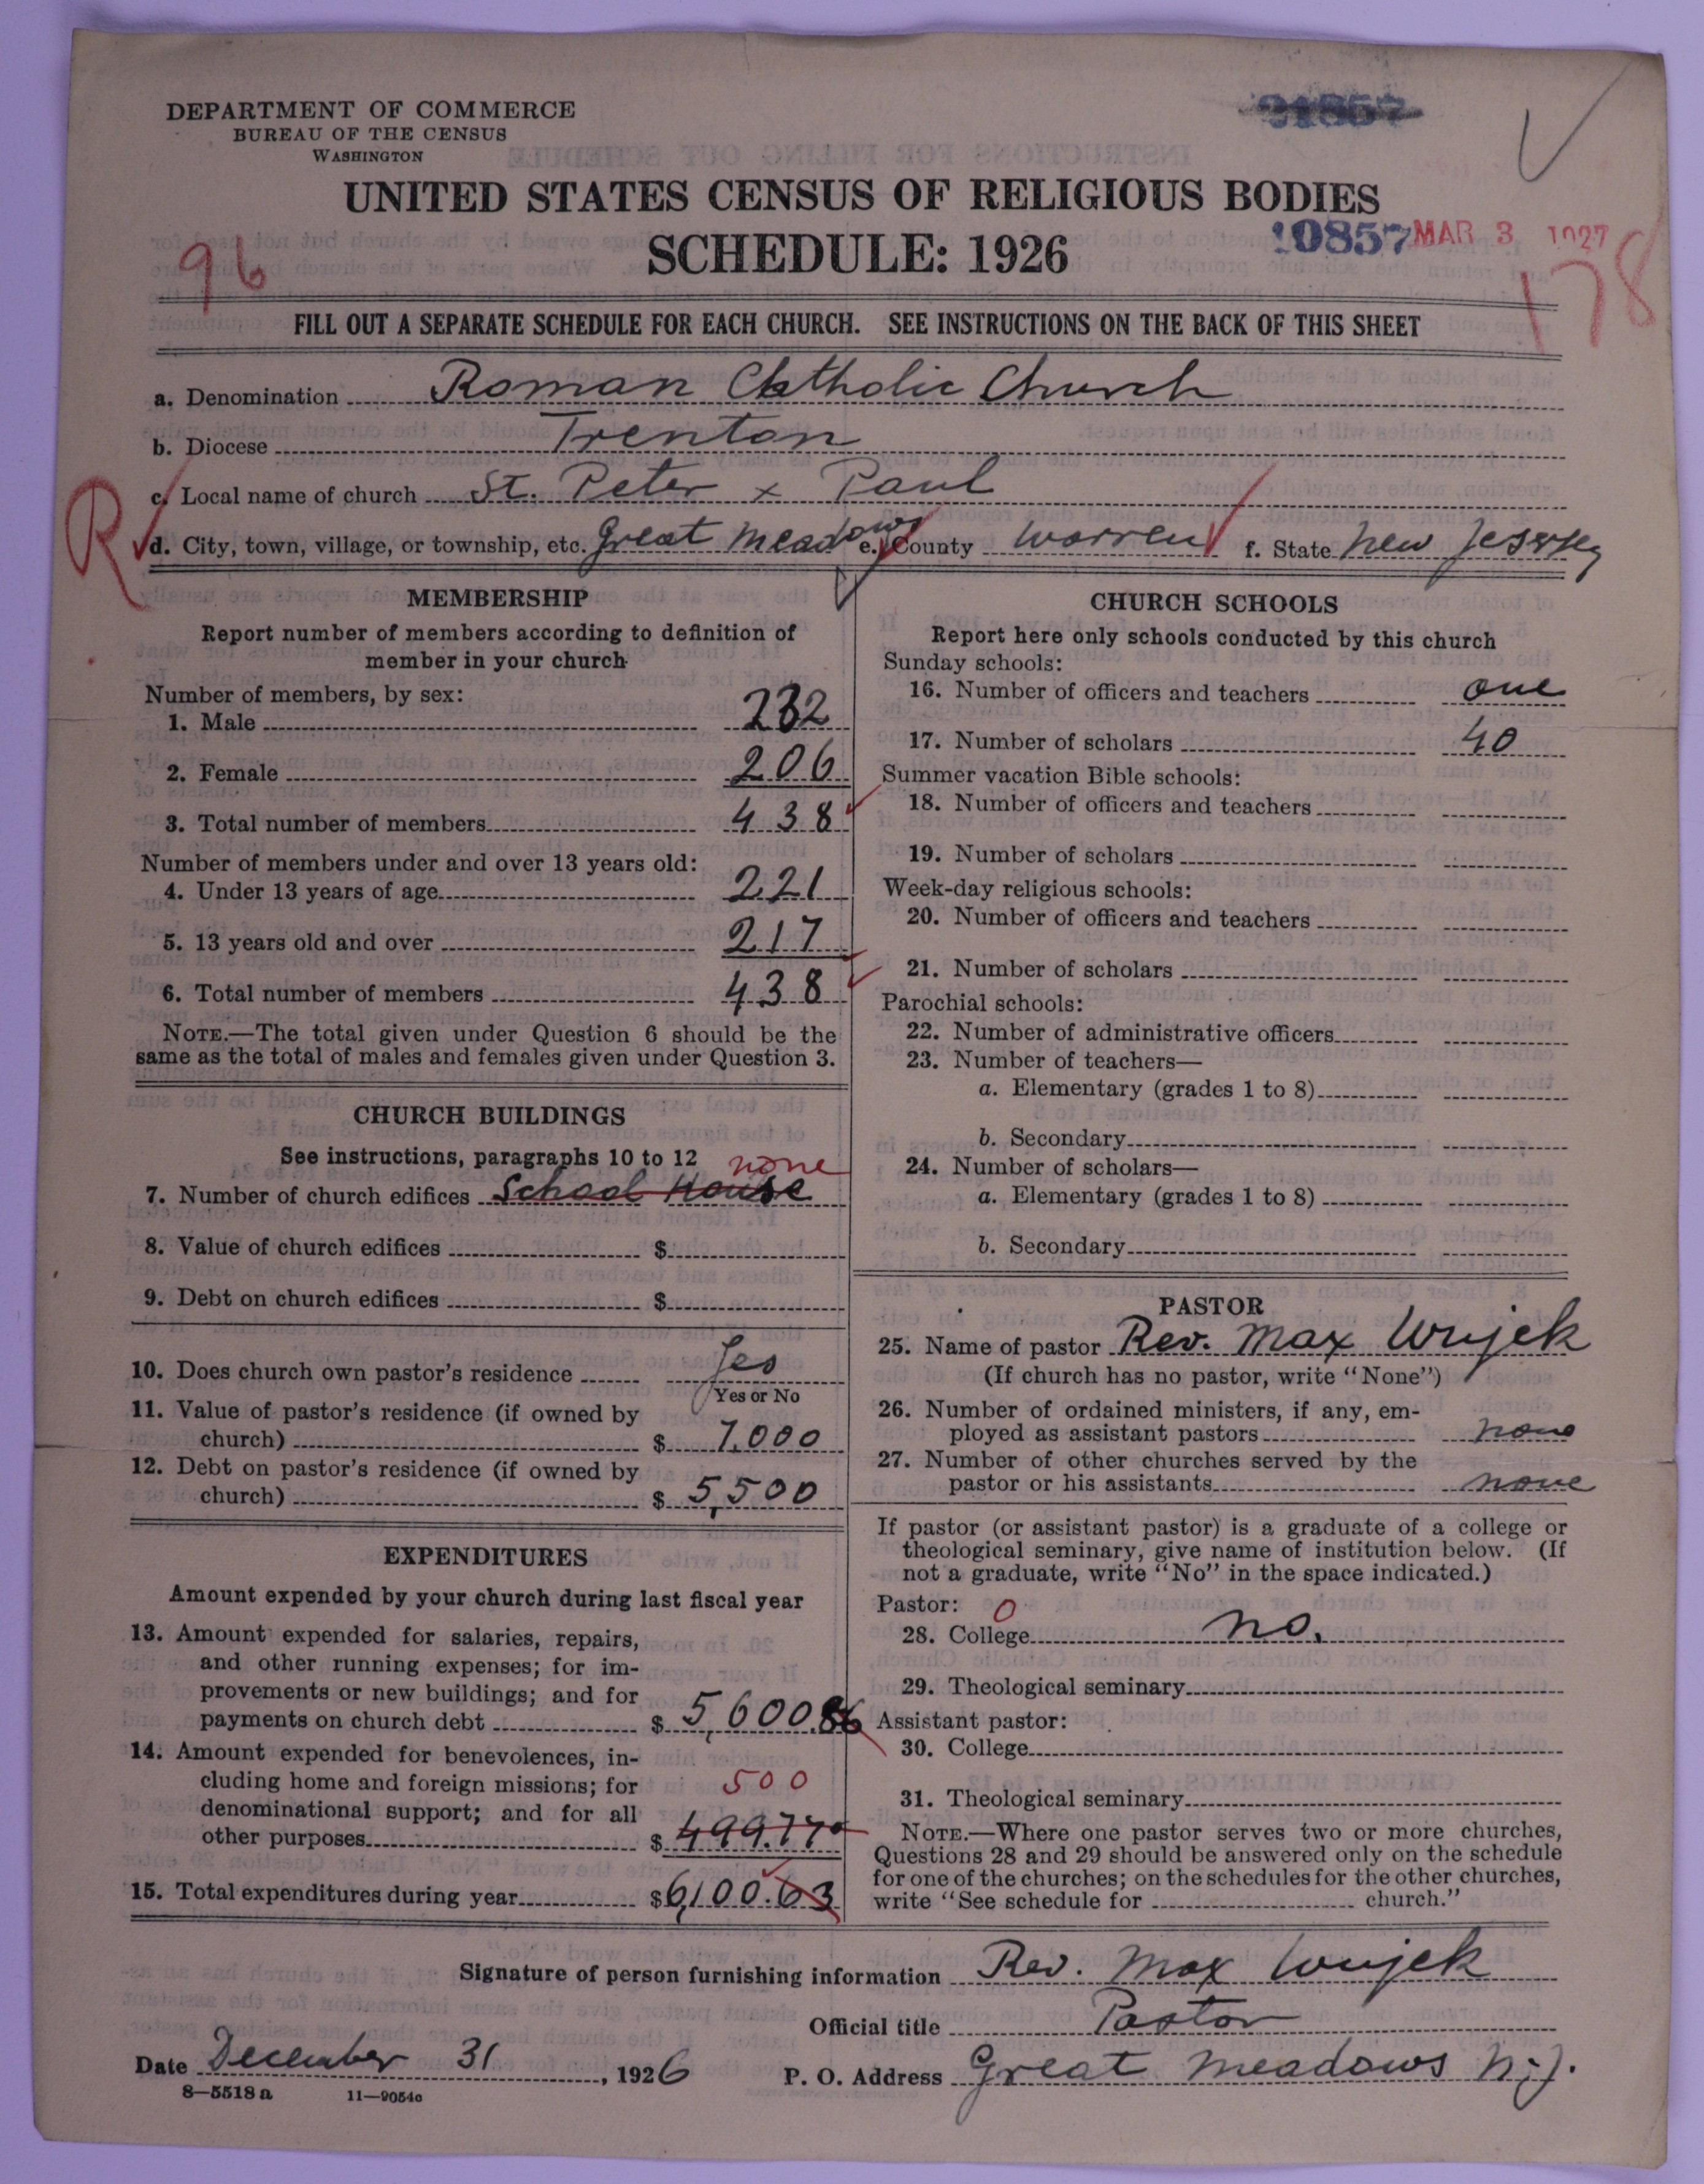 DEPARTMENT OF COMMERCE
BUREAU OF THE CENSUS
WASHINGTON
UNITED STATES CENSUS OF RELIGIOUS BODIES
SCHEDULE: 1926
10857 MAR 3 1927
96
178
FILL OUT A SEPARATE SCHEDULE FOR EACH CHURCH. SEE INSTRUCTIONS ON THE BACK OF THIS SHEET
a. Denomination Roman Catholic Church
b. Diocese Trenton
c. Local name of church St. Peter x Paul
R
d. City, town, village, or township, etc. Great Meadows e. County Warren f. State New Jersey
MEMBERSHIP
Report number of members according to definition of
member in your church
Number of members, by sex:
1. Male 232
2. Female 206
3. Total number of members 438
Number of members under and over 13 years old:
4. Under 13 years of age 221
5. 13 years old and over 217
6. Total number of members 438
NOTE.—The total given under Question 6 should be the
same as the total of males and females given under Question 3.
CHURCH BUILDINGS
See instructions, paragraphs 10 to 12
none
7. Number of church edifices School House
8. Value of church edifices $
9. Debt on church edifices $
10. Does church own pastor's residence Yes
Yes or No
11. Value of pastor's residence (if owned by
church) $ 7,000
12. Debt on pastor's residence (if owned by
church) $ 5,500
EXPENDITURES
Amount expended by your church during last fiscal year
13. Amount expended for salaries, repairs,
and other running expenses; for im-
provements or new buildings; and for
payments on church debt $ 5,600.86
14. Amount expended for benevolences, in-
cluding home and foreign missions; for
500
denominational support; and for all
other purposes $ 499.77
15. Total expenditures during year $6,100.63
CHURCH SCHOOLS
Report here only schools conducted by this church
Sunday schools:
16. Number of officers and teachers one
17. Number of scholars 40
Summer vacation Bible schools:
18. Number of officers and teachers
19. Number of scholars
Week-day religious schools:
20. Number of officers and teachers
21. Number of scholars
Parochial schools:
22. Number of administrative officers
23. Number of teachers—
a. Elementary (grades 1 to 8)
b. Secondary
24. Number of scholars—
a. Elementary (grades 1 to 8)
b. Secondary
PASTOR
25. Name of pastor Rev. Max Wujek
(If church has no pastor, write "None")
26. Number of ordained ministers, if any, em-
ployed as assistant pastors none
27. Number of other churches served by the
pastor or his assistants none
If pastor (or assistant pastor) is a graduate of a college or
theological seminary, give name of institution below. (If
not a graduate, write "No" in the space indicated.)
Pastor: 0
28. College no.
29. Theological seminary
Assistant pastor:
30. College
31. Theological seminary
NOTE.—Where one pastor serves two or more churches,
Questions 28 and 29 should be answered only on the schedule
for one of the churches; on the schedules for the other churches,
write "See schedule for church."
Signature of person furnishing information Rev. Max Wujek
Official title Pastor
Date December 31, 1926 P. O. Address Great Meadows N.J.
8—5518 a 11—9054c